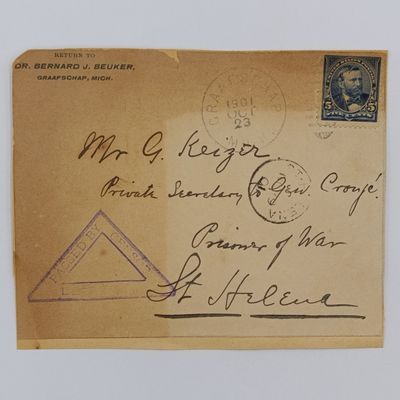 RETURN TO
DR. BERNARD J. BEUKER,
GRAAFSCHAP, MICH.
GRAAFSCHAP
1901
OCT
23
5 5
Mr G. Keizer
Private Secretary to Gen. Cronjé.
Prisoner of War
St Helena
PASSED BY CENSOR